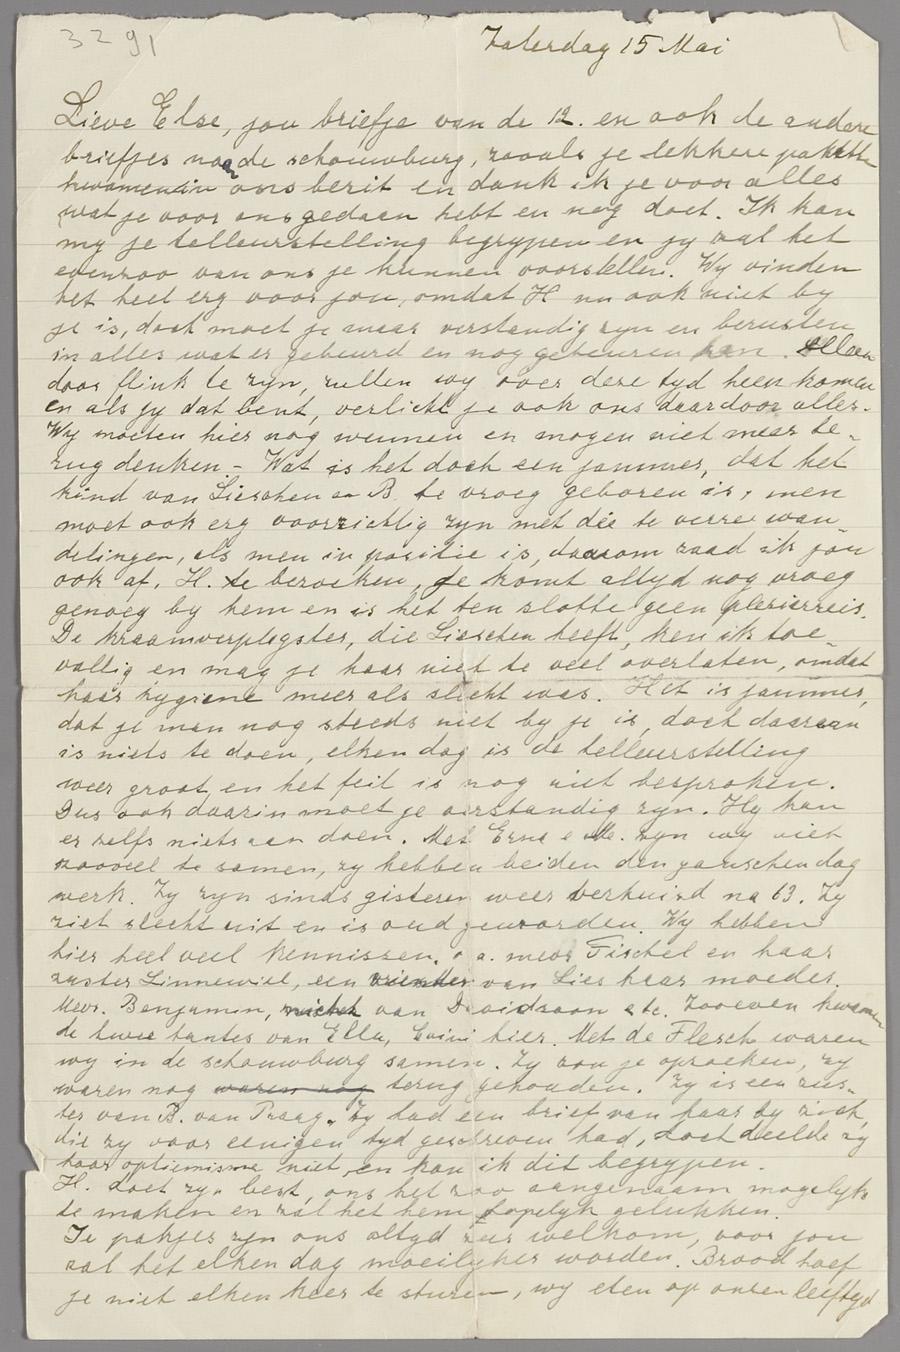 3291
Zaterdag 15 Mai
Lieve Else, jou briefje van de 12. en ook de andere
briefjes naa de schouwburg, zooals je lekkere pakette
kwamen in ons bezit en dank ik je voor alles
wat je voor ons gedaan hebt en nog doet. Ik kan
my je telleurstelling begrypen en jy zal het
evenzoo van ons je kunnen voorstellen. Wy vinden
het heel erg voor jou, omdat H nu ook niet by
je is, doch moet je maar verstandig zyn en berusten
in alles wat er gebeurd en nog gebeuren kan. Alleen
door flink te zyn, zullen wy over deze tyd heen komen
en als jy dat bent, verlicht je ook ons daardoor alles.
Wy moeten hier nog wennen en mogen niet meer te-
rug denken - Wat is het doch een jammer, dat het
kind van Lieschen en B. te vroeg geboren is, men
moet ook erg voorzichtig zyn met die te verre wan-
delingen, als men in positie is, daarom raad ik jou
ook af, H. te bezoeken, Je komt altyd nog vroeg
genoeg by hem en is het ten slotte geen plezierreis.
De kraamverplegster, die Lieschen heeft, ken ik toe-
vallig en mag je haar niet te veel overlaten, omdat
haar hygiene meer als slecht was. Het is jammer,
dat je man nog steeds niet by je is, doch daaraan
is niets te doen, elken dag is de telleurstelling
weer groot, en het feit is nog niet besproken.
Dus ook daarin moet je verstandig zyn. Hy kan
er zelfs niets aan doen. Met Erna e M. zyn wy niet
zooveel te samen, zy hebben beiden den ganschen dag
werk. Zy zyn sinds gisteren weer verhuisd na 63. Zy
ziet slecht uit en is oud geworden. Wy hebben
hier heel veel kennissen, o a. mevr Fischel en haar
zuster Linnewiel, een vrienden van Lies haar moeder.
Mevr. Benjamin, nicht van Davidsson etc. Zooeven kwamen
de twee tantes van Ella, hier. Met de Flesch waren
wy in de schouwburg samen. Zy zou je opzoeken, zy
waren nog waren nog terug gehouden. Zy is een zus-
ter van B. van Praag. Zy had een brief van haar by zich,
die zy voor eenigen tyd geschreven had, doch deelde zy
haar optiemisme niet, en kan ik dit begrypen.
H. doet zyn best, ons het zoo aangenaam mogelyk
te maken en zal het hem hopelyk gelukken.
Je pakjes zyn ons altyd zeer welkom, voor jou
zal het elken dag moeilyker worden. Brood hoef
je niet elken keer te sturen, wy eten op onzen leeftyd